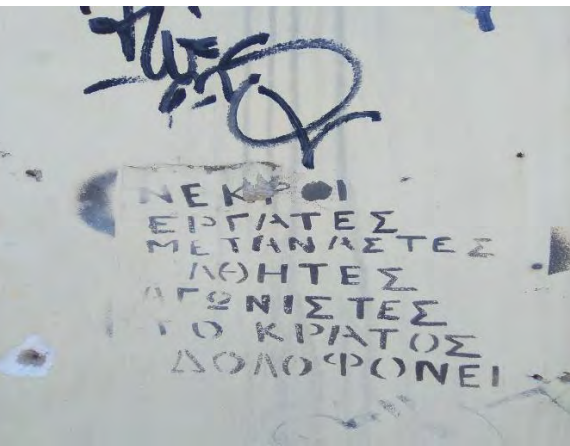 ΝΕΚΡΟΙ
ΕΡΓΑΤΕΣ
ΜΕΤΑΝΑΣΤΕΣ
ΑΘΗΤΕΣ
ΑΓΩΝΙΣΤΕΣ
ΤΟ ΚΡΑΤΟΣ
ΔΟΛΟΦΟΝΕΙ